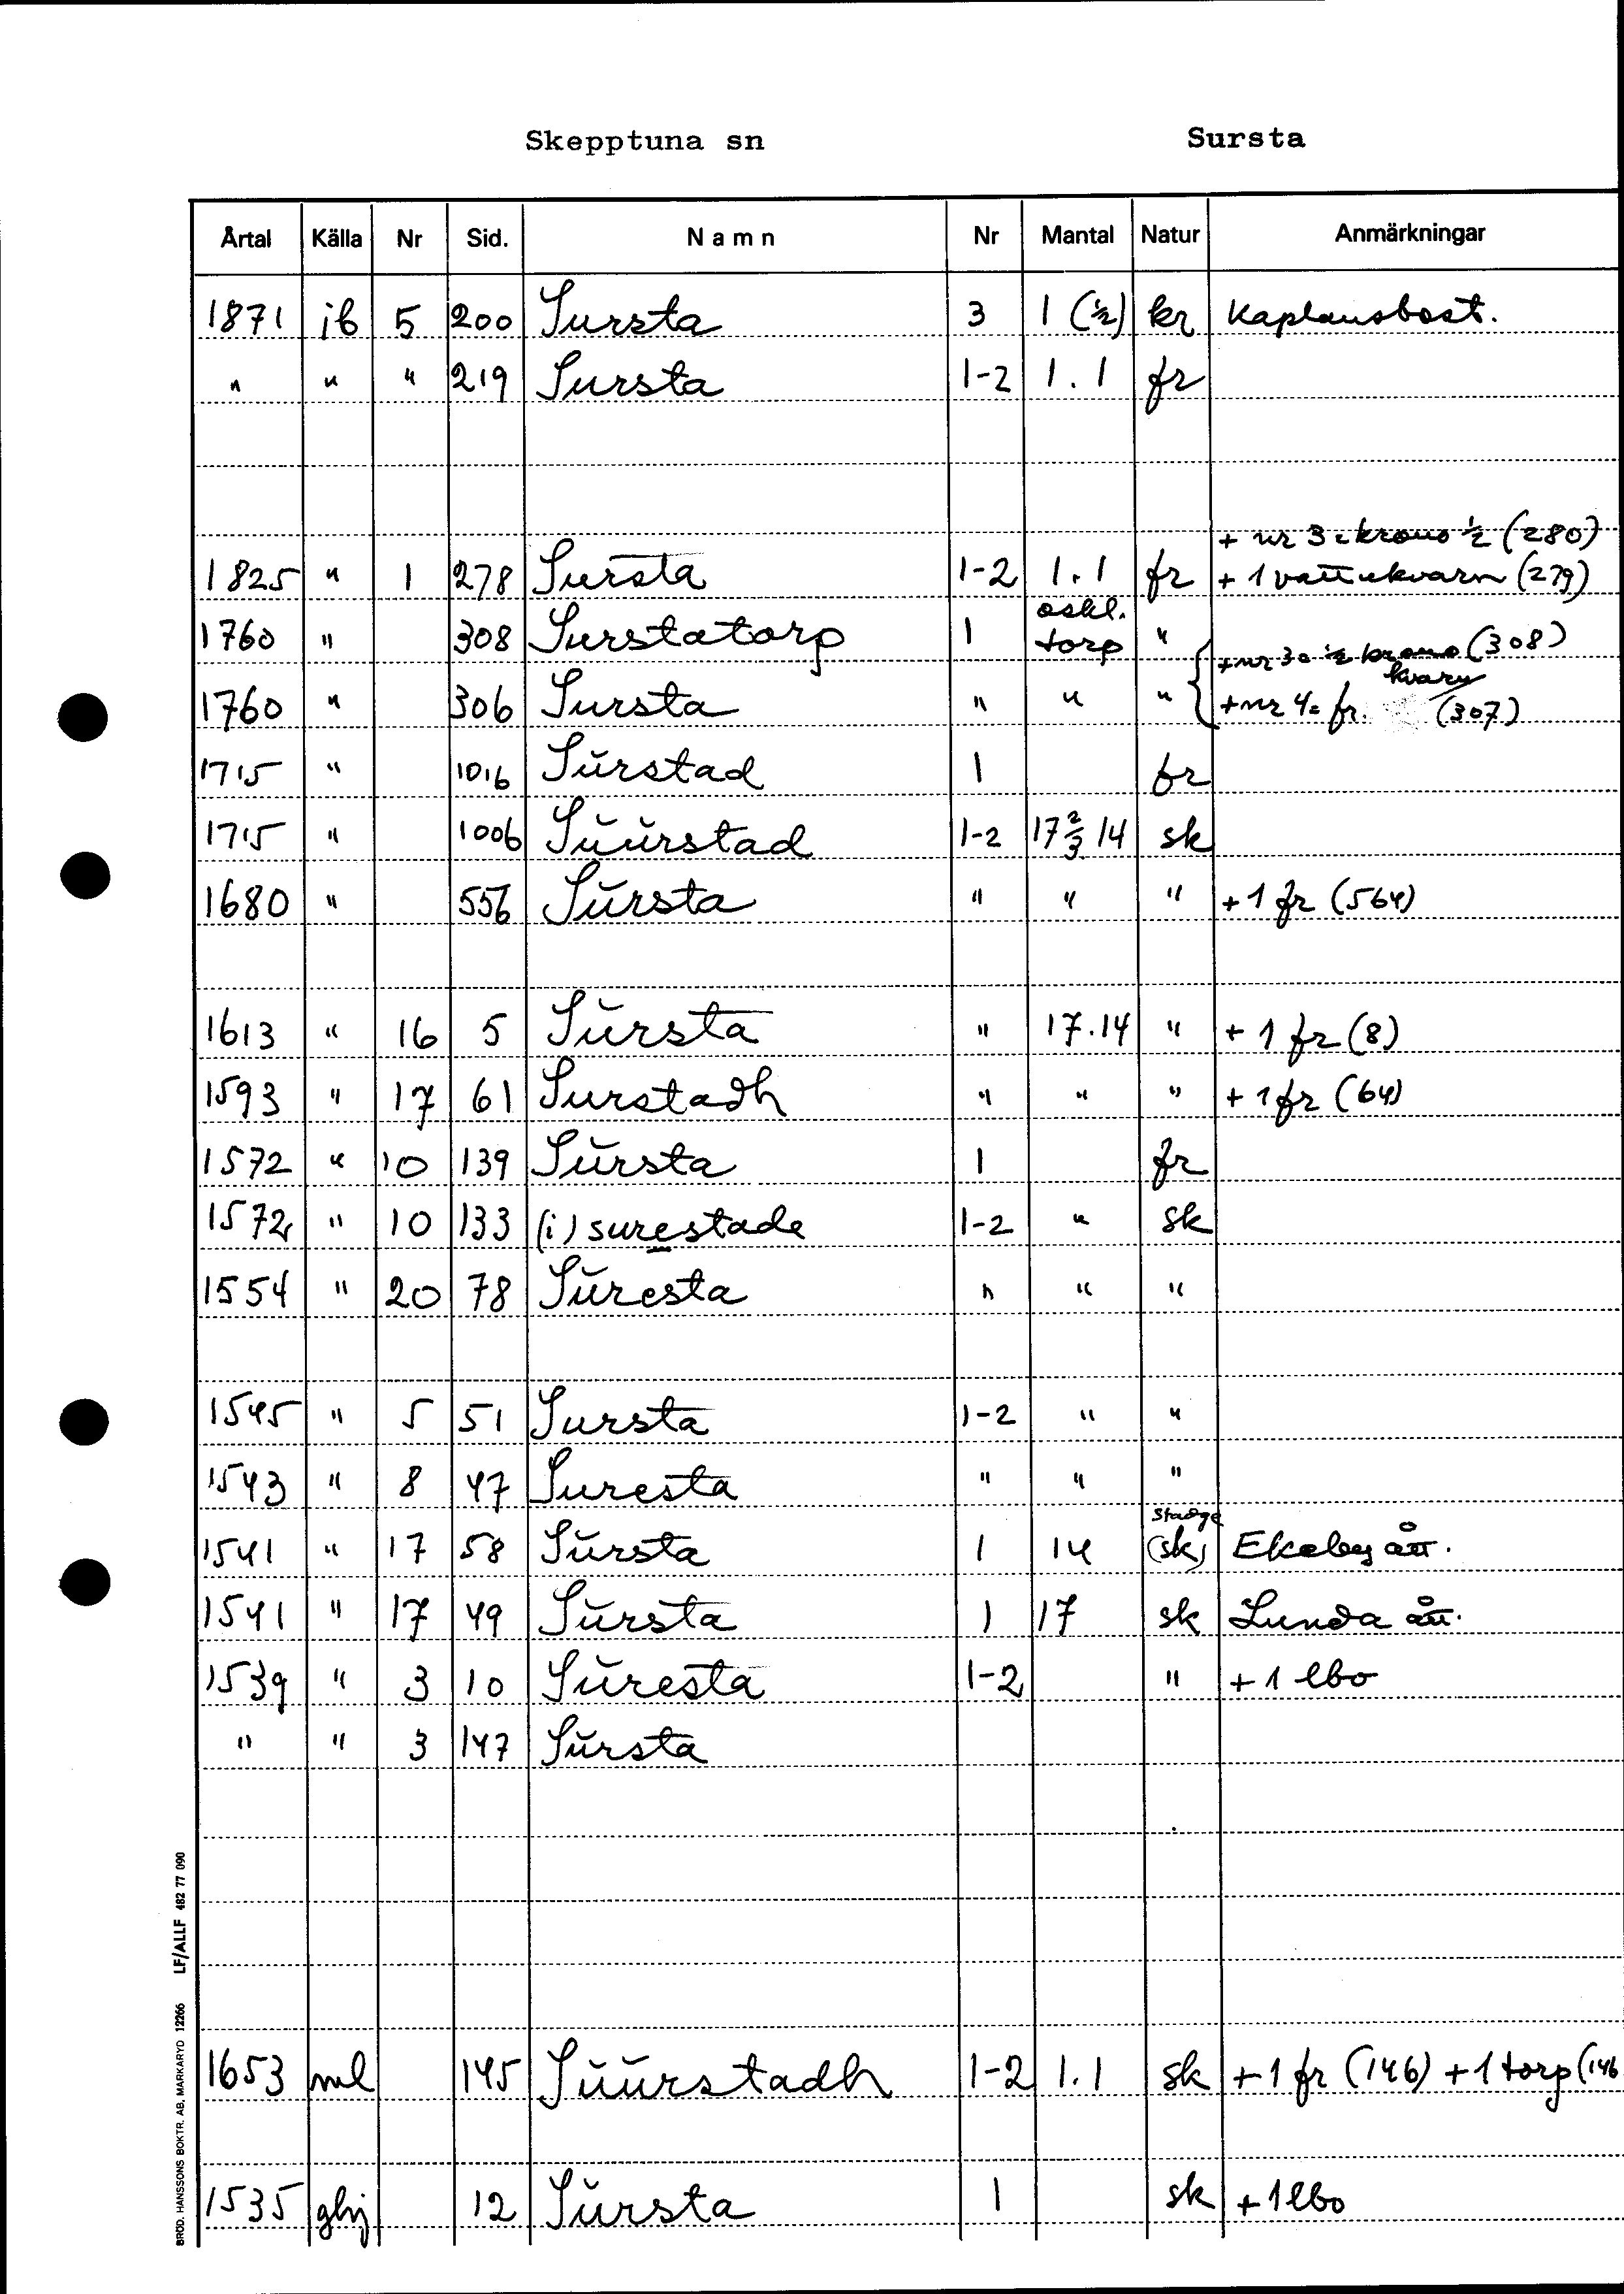 Skepptuna sn Sursta
Årtal Källa Nr Sid. Namn Nr Mantal Natur Anmärkningar
1871 ib 5 200 Sursta 3 1 (½) kr Kaplansbost.
" " " 219 Sursta 1-2 1.1 fr
+ nr 3 = krono ½ (280)
1825 " 1 278 Sursta 1-2 1.1 fr + 1 vattukvarn (279)
oskl.
1760 " 308 Surstatorp 1 torp " + nr 3 = ½ krono (308)
kvarn
1760 " 306 Sursta " " " + nr 4 = fr. (307)
1715 " 1016 Sŭrstad 1 fr
1715 " 1006 Sŭŭrstad 1-2 17 ⅔ 14 sk
1680 " 556 Sŭrsta " " " + 1 fr (564)
1613 " 16 5 Sŭrsta " 17.14 " + 1 fr (8)
1593 " 17 61 Surstadh " " " + 1 fr (64)
1572 " 10 139 Sŭrsta 1 fr
1572 " 10 133 (i) surestade 1-2 " sk
1554 " 20 78 Sŭresta " " "
1545 " 5 51 Sursta 1-2 " "
1543 " 8 47 Suresta " " "
stadge
1541 " 17 58 Sŭrsta 1 14 (sk) Ekebyått.
1541 " 17 49 Sŭrsta 1 17 sk Lundaått.
1539 " 3 10 Sŭresta 1-2 " + 1 lbo
" " 3 147 Sŭrsta
1653 ml 145 Sŭŭrstadh 1-2 1.1 sk + 1 fr (146) + 1 torp (146
1535 ghj 12 Sŭrsta 1 sk + 1 lbo
BROD. HANSSONS BOKTR. AB, MARKARYD 12266 LF/ALLF 482 77 090